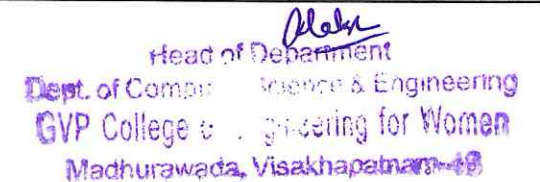 Head of Department
Dept. of Computer Science & Engineering
GVP College of Engineering for Women
Madhurawada, Visakhapatnam-48